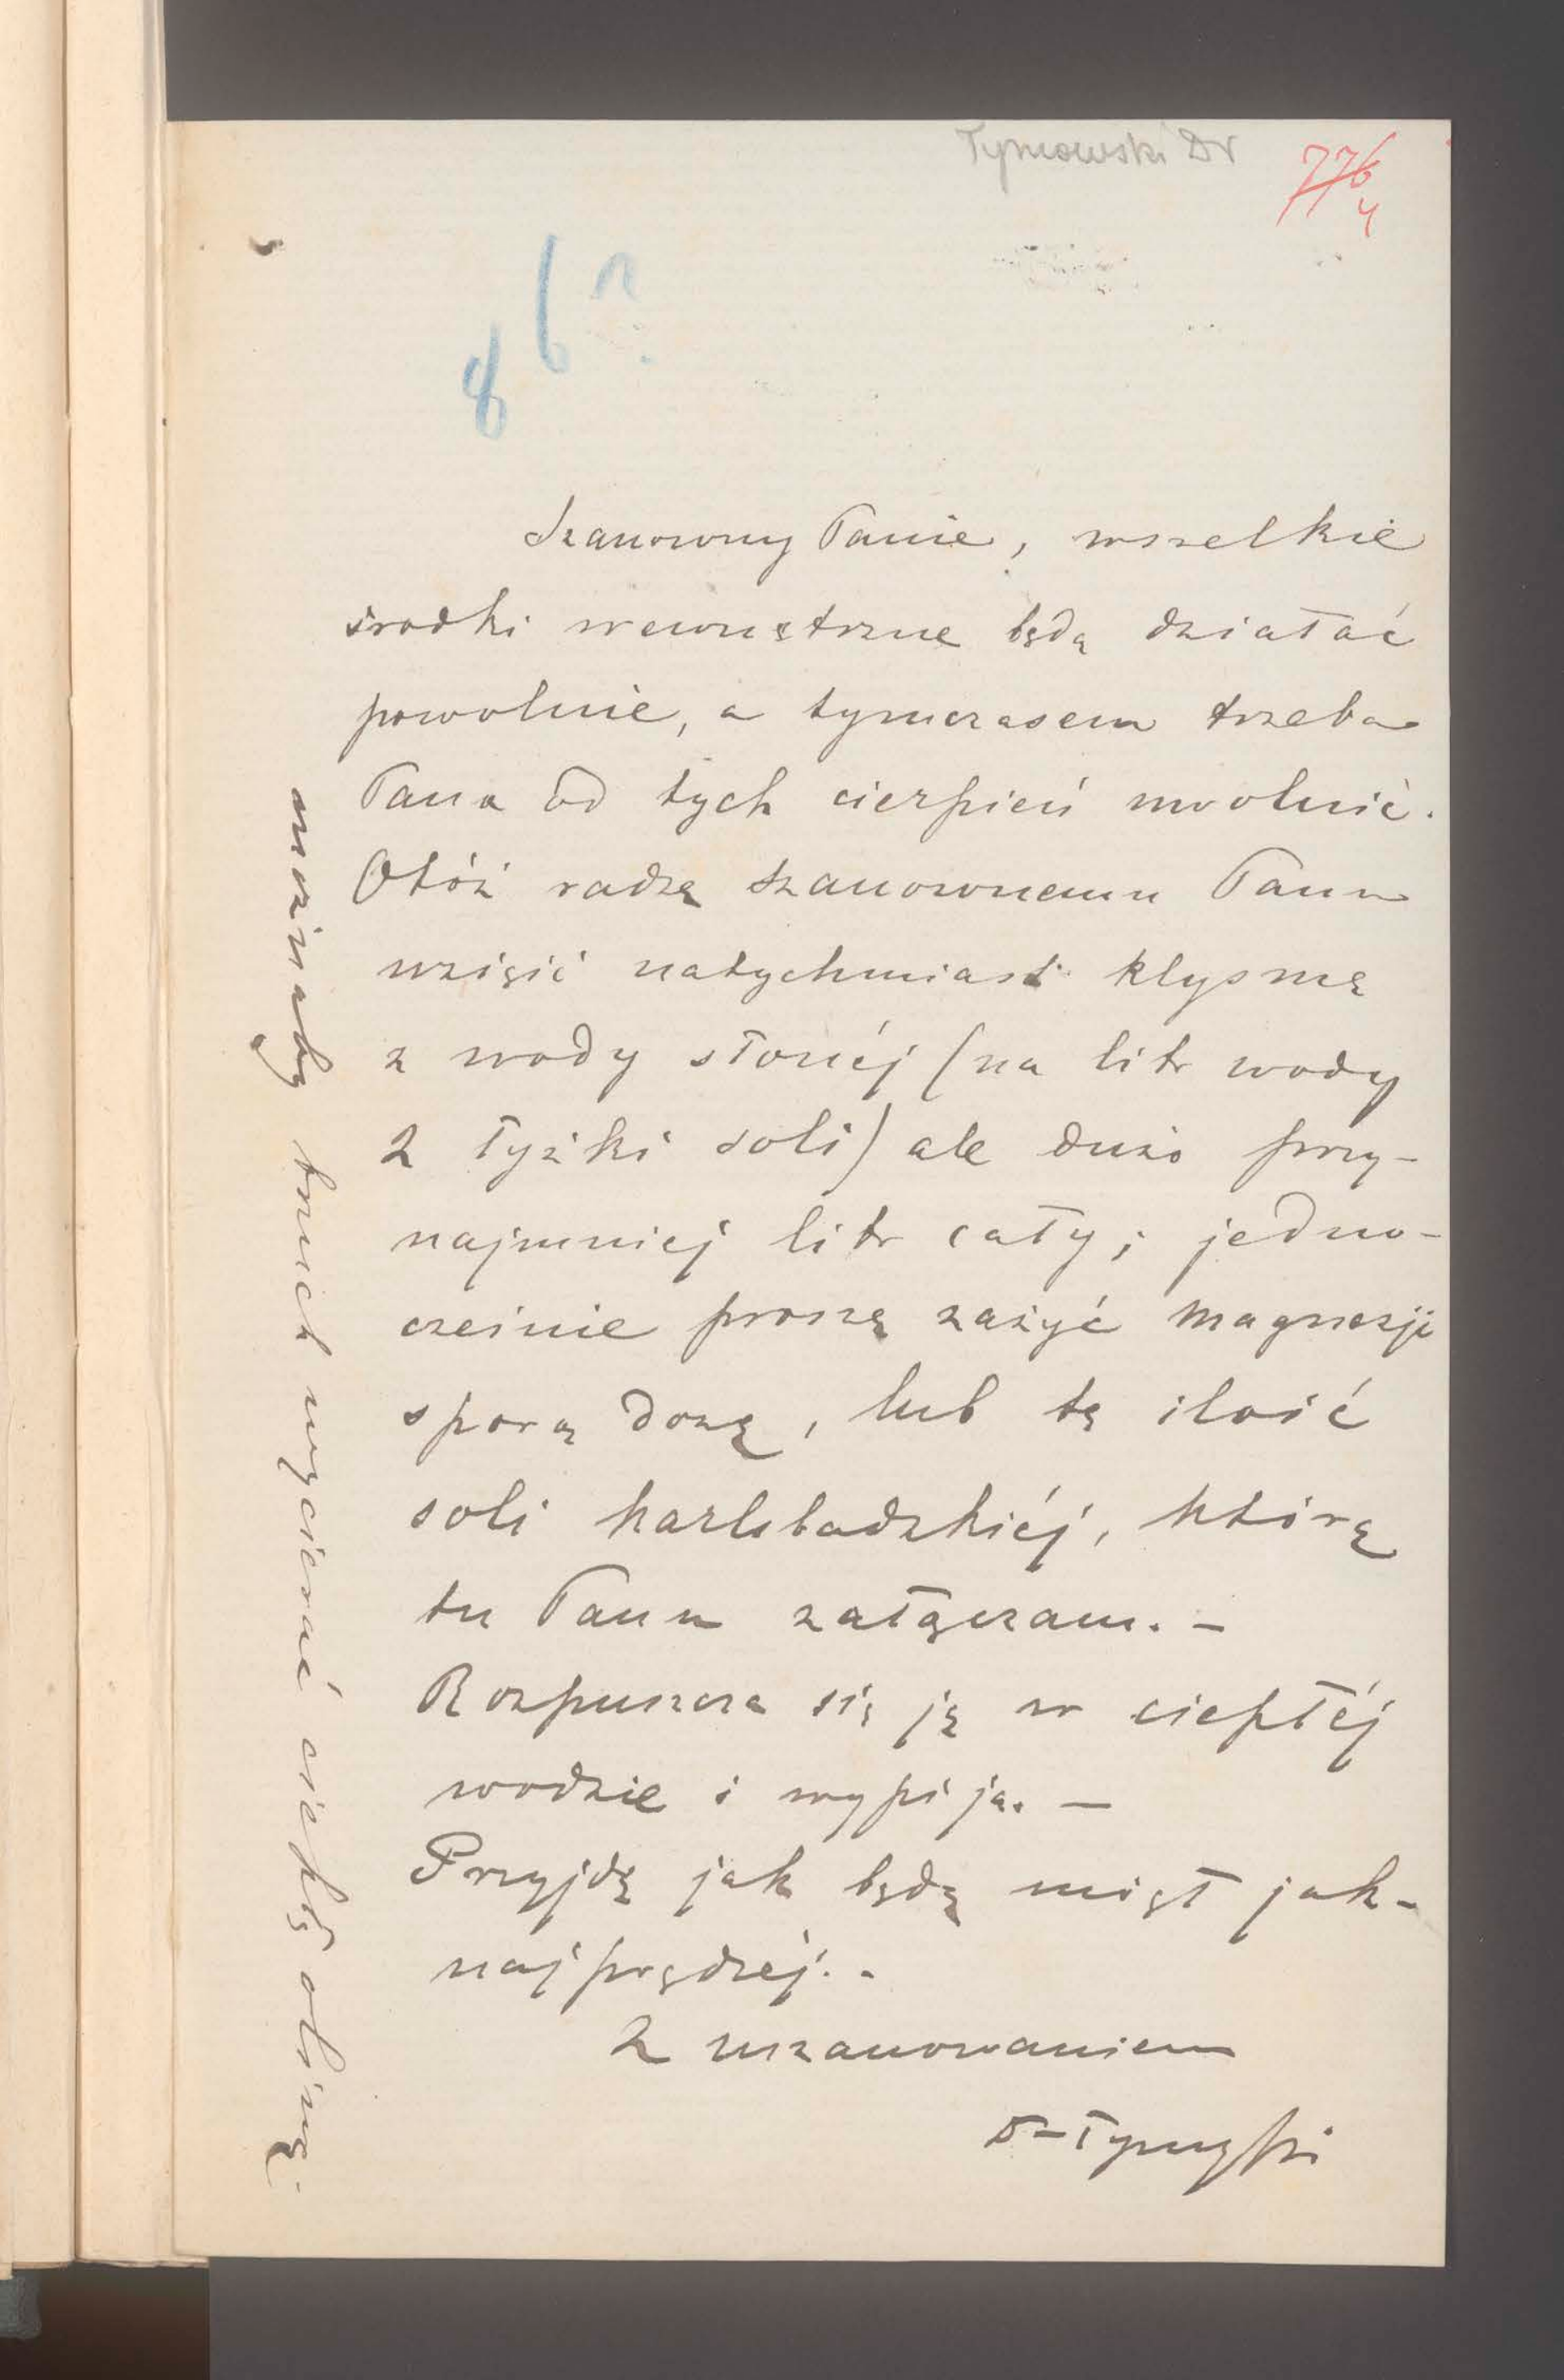 Tymowski Dr
776
4
6 ?
8
Szanowny Panie, wszelkie
środki wewnętrzne będą działać
powolnie, a tymczasem trzeba
Pana od tych cierpień uwolnić.
Otóż radzę Szanownemu Panu
wziąść natychmiast klysmę
z wody słonéj (na litr wody
2 łyżki soli) ale dużo przy-
najmniej litr cały; jedno-
cześnie proszę zażyć magnezji
sporą dozę, lub tę ilość
soli karlsbadzkiéj, którą
tu Panu załączam. –
Rozpuszcza się ją w ciepłéj
wodzie i wypija. –
Przyjdę jak będę mógł jak-
najprędzéj. -
Z uszanowaniem
Dr Tymowski
możnaby brzuch wycierać ciepłą oliwą.